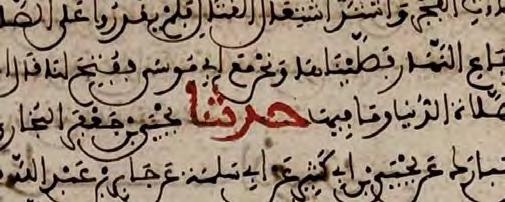 الفجر واشتد اشتعال القتال فلم يقدروا على الصلا
فاع النهار فصليناها ونحن مع ابي موسى ففتح لنا قال
الصلاة الدنيا وما فيها حدثنا يحيى بن جعفر البخاري
مبارك عن يحيى بن ابي كثير عن ابي سلمة عن جابر بن عبد الله